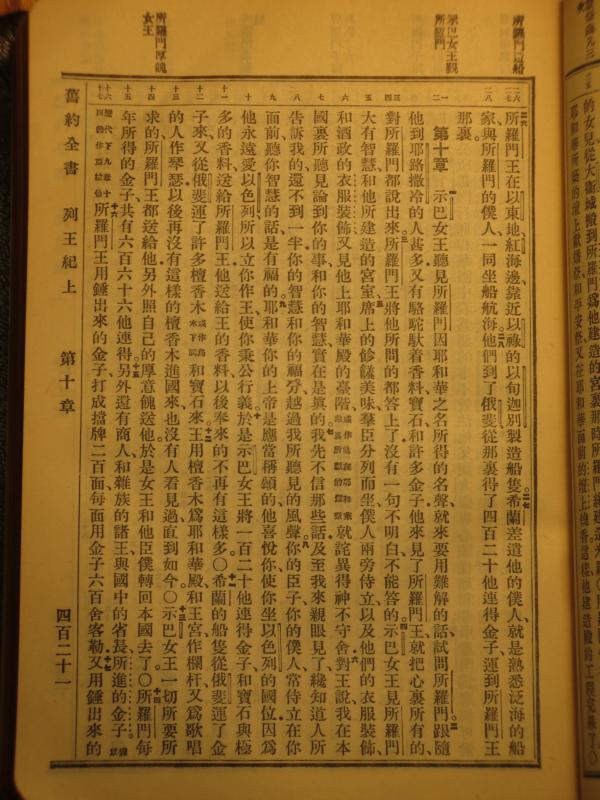 所羅門
示巴女王覲
所羅門
所羅門厚餽
女王
所羅門王在以東地紅海邊靠近以祿的以旬迦別製造船隻希蘭差遣他的僕人就是熟悉泛海的船
家與所羅門的僕人一同坐船航海他們到了俄斐從那裏得了四百二十他連得金子運到所羅門王
那裏
第十章 示巴女王聽見所羅門因耶和華之名所得的名聲就來要用難解的話試問所羅門跟隨
他到耶路撒冷的人甚多又有駱駝馱着香料寶石和許多金子他來見了所羅門王就把心裏所有的
對所羅門都說出來所羅門王將他所問的都答上了沒有一句不明白不能答的示巴女王見所羅門
大有智慧和他所建造的宮室席上的餚饌美味羣臣分列而坐僕人兩旁侍立以及他們的衣服裝飾
和酒政的衣服裝飾又見他上耶和華殿的臺階就詫異得神不守舍對王說我在本
國裏所聽見論到你的事和你的智慧實在是真的我先不信那些話及至我來親眼見了纔知道人所
告訴我的還不到一半你的智慧和你的福分越過我所聽見的風聲你的臣子你的僕人常侍立在你
面前聽你智慧的話是有福的耶和華你的上帝是應當稱頌的他喜悅你使你坐以色列的國位因爲
他永遠愛以色列所以立你作王使你秉公行義於是示巴女王將一百二十他連得金子和寶石與極
多的香料送給所羅門王他送給王的香料以後奉來的不再有這樣多○希蘭的船隻從俄斐運了金
子來又從俄斐運了許多檀香木和寶石來王用檀香木爲耶和華殿和王宮作欄杆又爲歌唱
的人作琴瑟以後再沒有這樣的檀香木進國來也沒有人看見過直到如今○示巴女王一切所要所
求的所羅門王都送給他另外照自己的厚意餽送他於是女王和他臣僕轉回本國去了○所羅門每
年所得的金子共有六百六十六他連得另外還有商人和雜族的諸王與國中的省長所進的金子
所羅門王用錘出來的金子打成擋牌二百面每面用金子六百舍客勒又用錘出來的
舊約全書 列王紀上 第十章 四百二十一